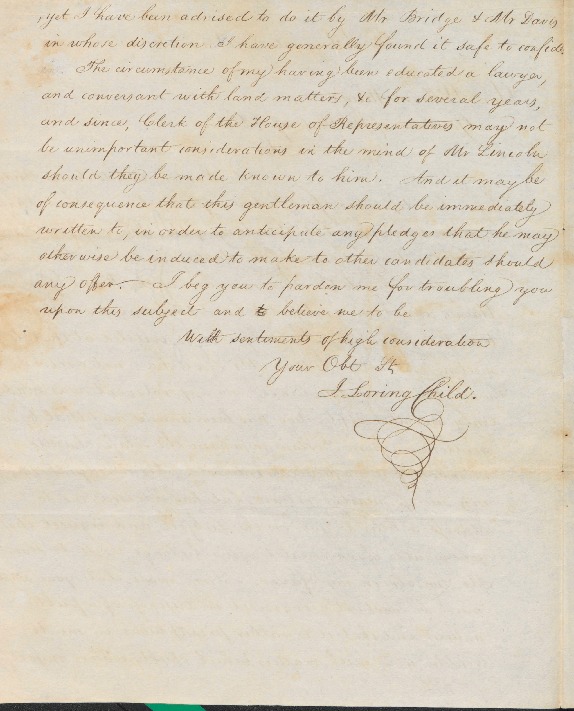 yet I have been advised to do it by Mr Bridge & Mr Davis
in whose discretion I have generally found it safe to confide.
The circumstance of my having been educated a lawyer,
and conversant with land matters, &c for several years,
and since, Clerk of the House of Representatives may not
be unimportant considerations in the mind of Mr Lincoln
should they be made known to him. And it may be
of consequence that this gentleman should be immediately
written to, in order to anticipate any pledges that he may
otherwise be induced to make to other candidates should
any offer. — I beg you to pardon me for troubling you
upon this subject and to believe me to be
With sentiments of high consideration
Your Obt St,
J. Loring Child.